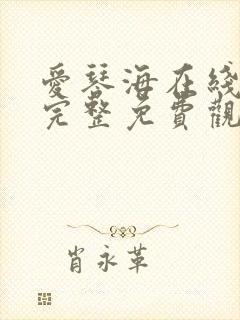 愛琴海在綫
完整免費觀
肖永革